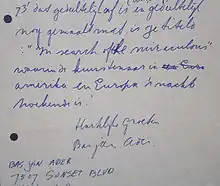 73' dat gedeeltelijk af is en gedeeltelijk
nog gemaakt moet is getiteld
: "In search of the miraculous"
waarin de kunstenaar in
amerika en Europa 's nachts
zoekend is.
Hartelijk Groeten
Bas Jan Ader.
BAS JAN ADER
SUNSET BLVD